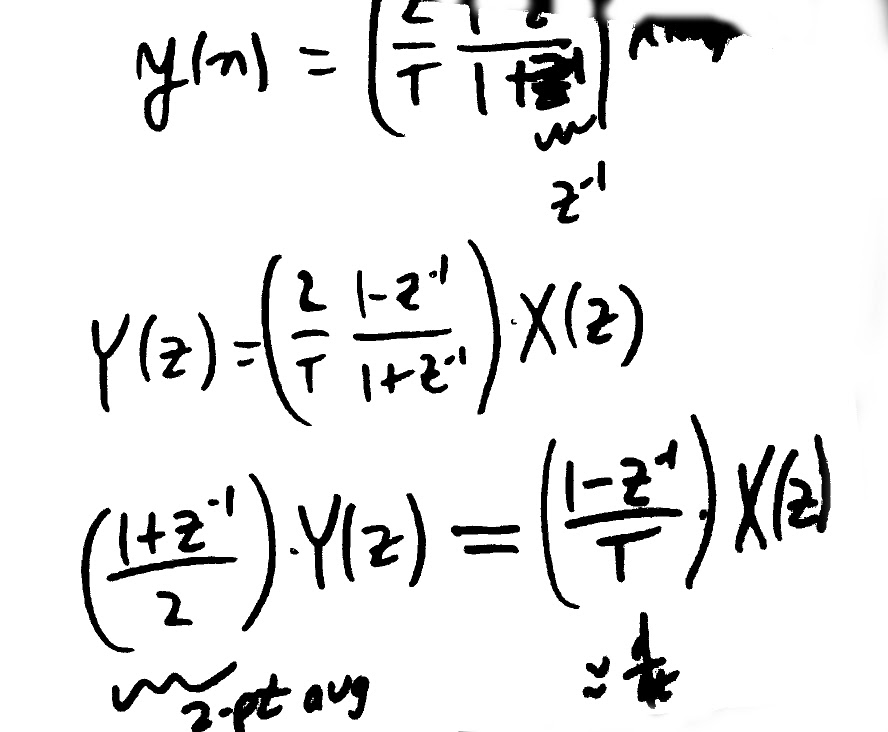 y(n) = (2/T (1-z)/(1+z^-1))
z^-1
Y(z) = (2/T (1-z^-1)/(1+z^-1)) · X(z)
((1+z^-1)/2) · Y(z) = ((1-z^-1)/T) · X(z)
2-pt avg ≈ d/dt